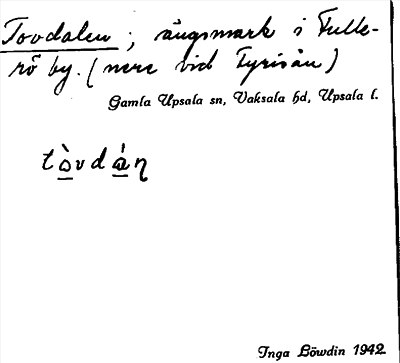 Tovdalen ; ängsmark i Fulle-
rö by. (nere vid Fyrisån)
Gamla Upsala sn, Vaksala hd, Upsala l.
tòvdán
Inga Löwdin 1942